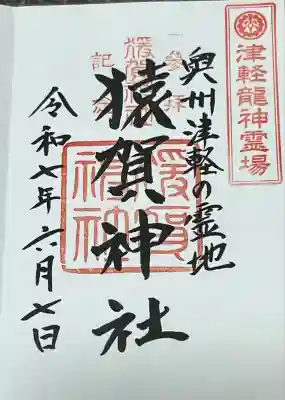 津軽龍神霊場
奥州津軽の霊地
参拝
記念
猿賀神社
猿賀
神社
令和七年六月七日